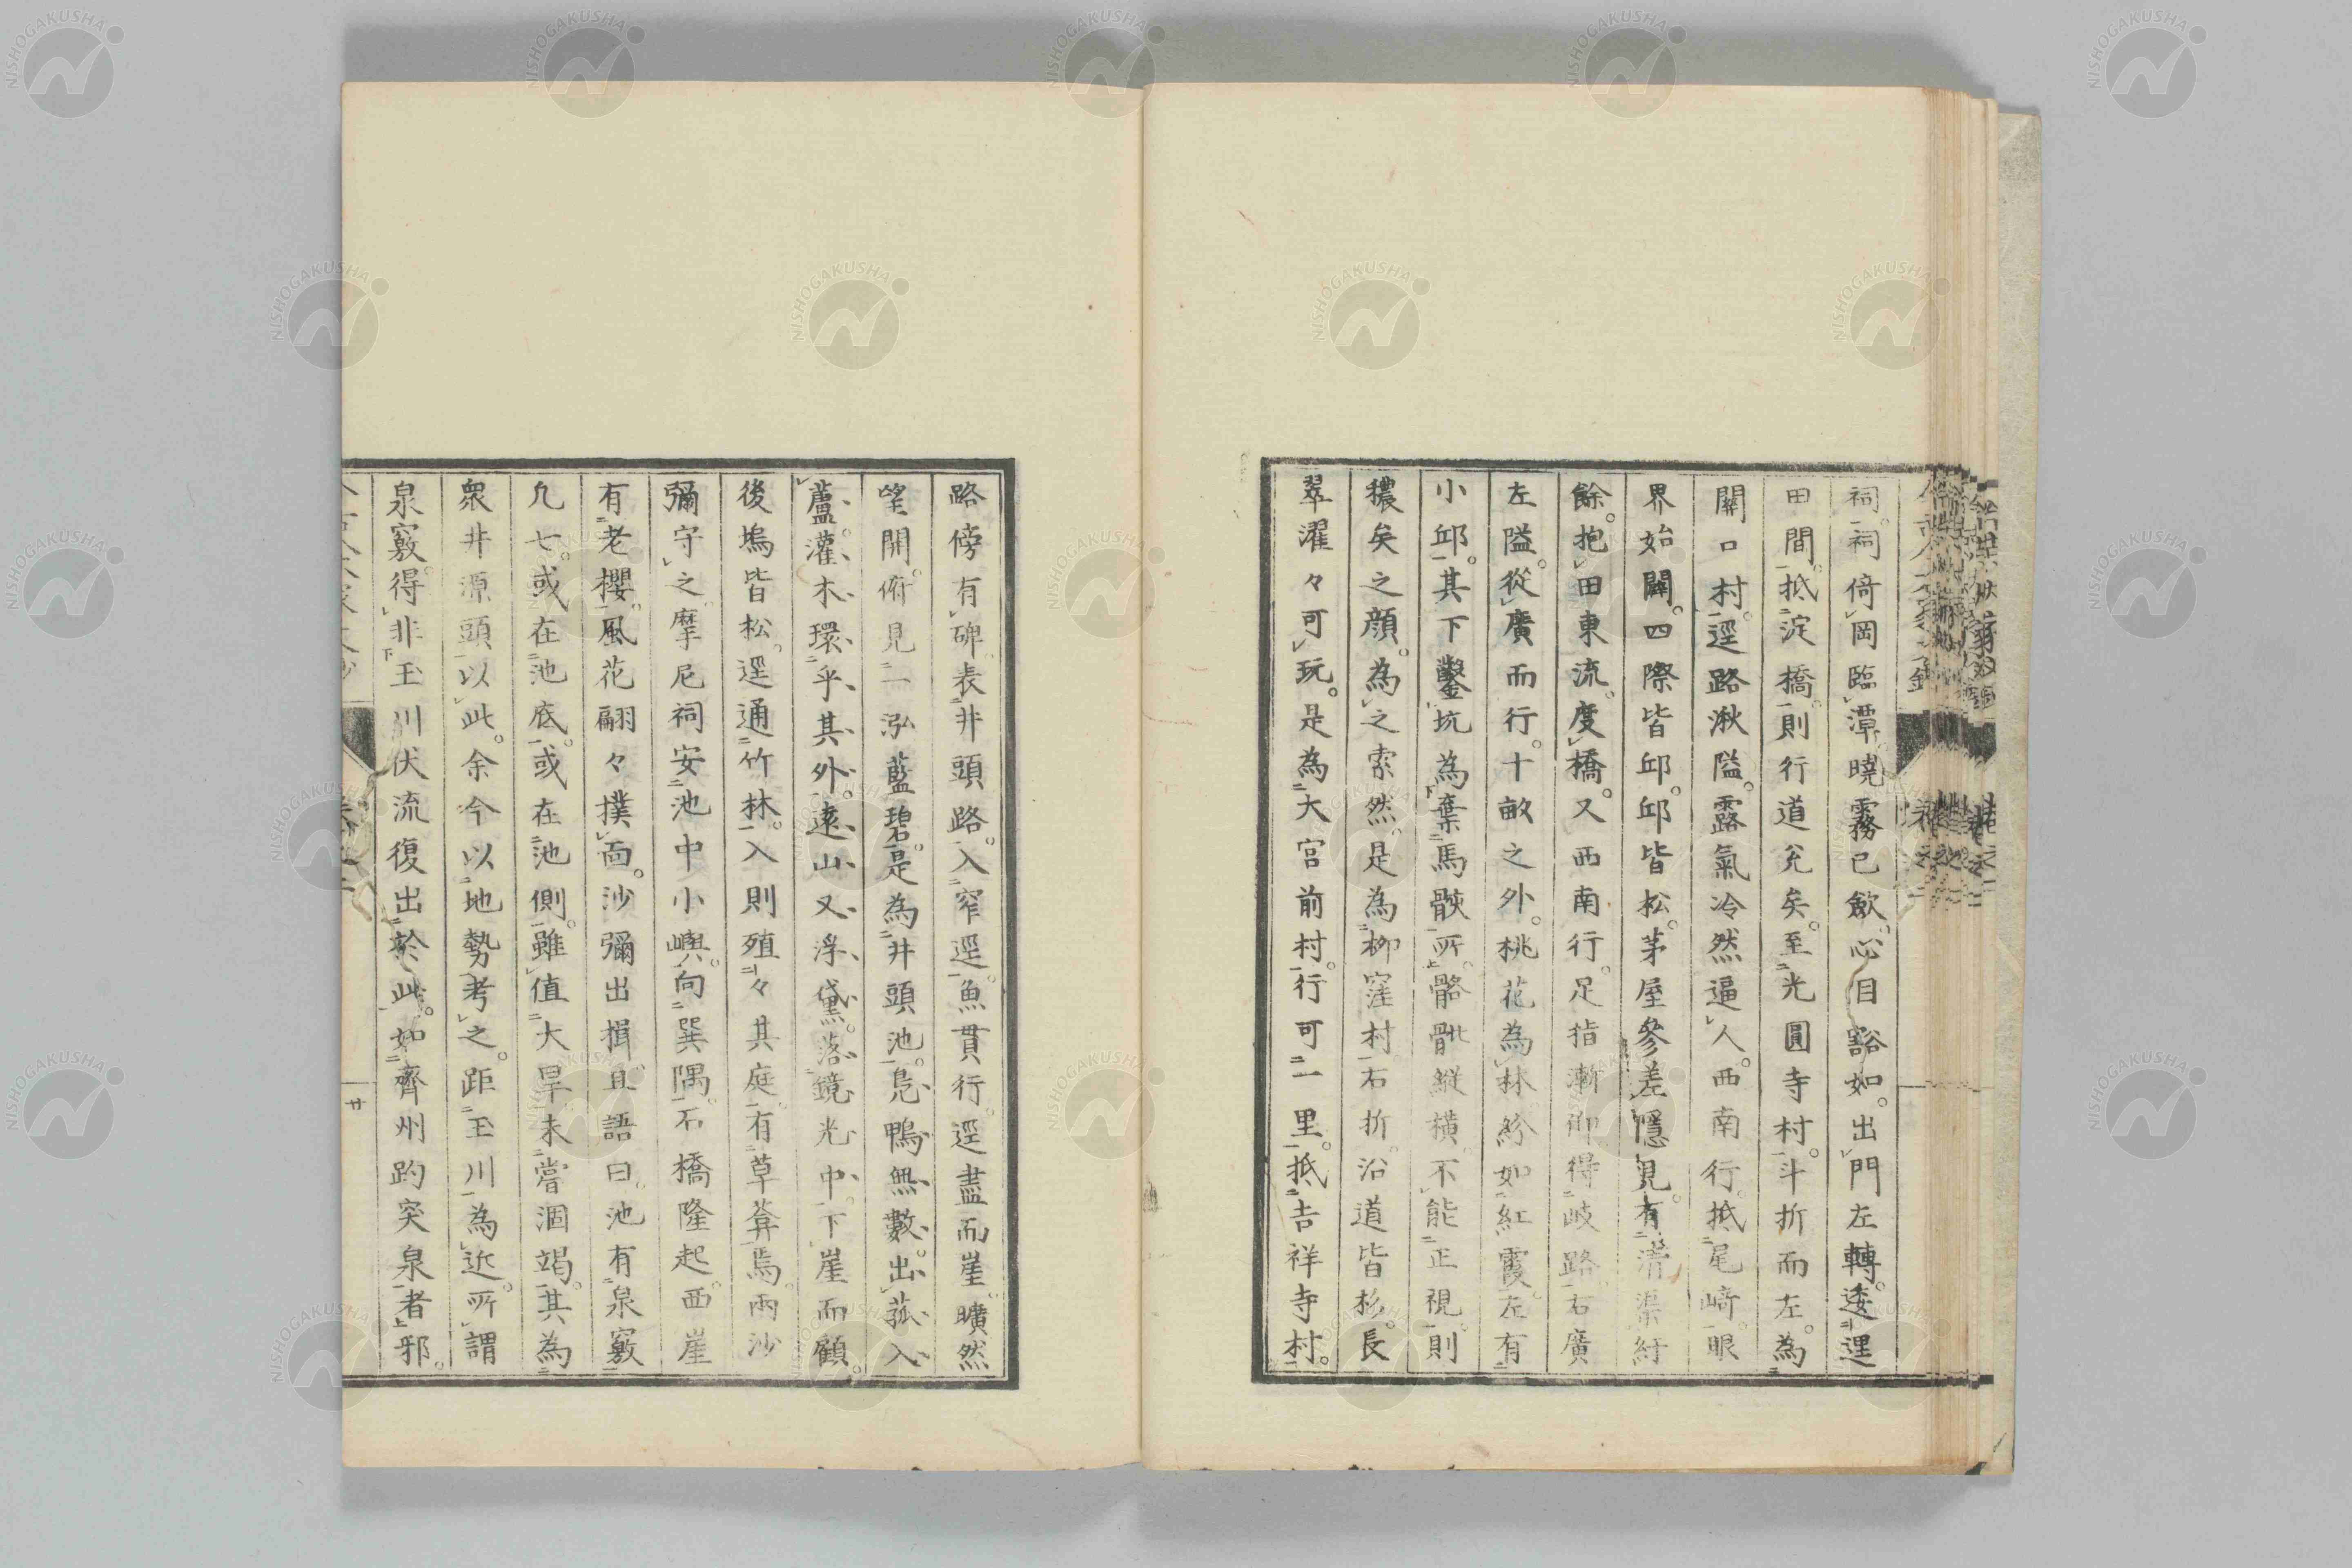 祠。祠倚岡臨潭曉霧已歛。心目豁如。出門左轉。逶迤
田間。抵淀橋。則行道兊矣。至光圓寺村。斗折而左。為
關口村。逕路湫隘。露氣冷然逼人。西南行。抵尾﨑。眼
界始闢。四際皆邱。邱皆松。茅屋參差隱見。有清渠紆
餘。抱田東流。度橋。又西南行。足指漸仰得岐路。右廣
左隘。從廣而行。十畝之外。桃花為林紛如紅霞。左有
小邱。其下鑿坑為棄馬骸所。骼骴縱橫。不能正視。則
穠矣之顔。為之索然。是為柳窪村。右折。沿道皆杉。長
翠濯々可玩。是為大宮前村。行可二里。抵吉祥寺村。
路傍有碑。表井頭路。入窄逕。魚貫行。逕盡而崖。曠然
望開。俯見一泓藍碧。是為井頭池。鳧鴨無數。出菰入
蘆。灌木環乎其外。遠山又浮黛。落鏡光中。下崖而顧。
後塢皆松。逕通竹林。入則殖々其庭。有草菴焉。兩沙
彌守之。摩尼祠安池中小嶼。向巽隅。石橋隆起。西崖
有老櫻。風花翩々撲面。沙彌出揖且語曰。池有泉竅
凡七。或在池底。或在池側。雖值大旱未嘗涸竭。其為
衆井源頭以此。余今以地勢考之。距玉川為近。所謂
泉竅得非玉川伏流復出於此。如齊州趵突泉者邪。
廿